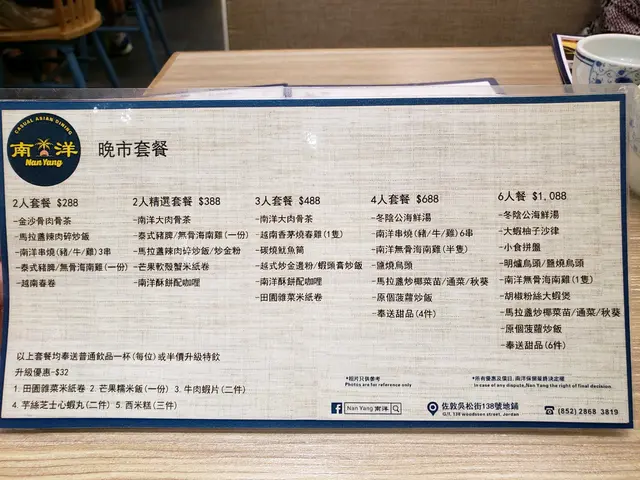 CASUAL ASIAN DINING
南洋
Nan Yang
晚市套餐
2人套餐 $288
-金沙骨肉骨茶
-馬拉盞辣肉碎炒飯
-南洋串燒(豬/牛/雞)3串
-泰式豬脾/無骨海南雞(一份)
-越南春卷
2人精選套餐 $388
-南洋大肉骨茶
-泰式豬脾/無骨海南雞(一份)
-馬拉盞辣肉碎炒飯/炒金粉
-芒果軟殼蟹米紙卷
-南洋酥餅配咖喱
3人套餐 $488
-南洋大肉骨茶
-越南香茅燒春雞(1隻)
-碳燒魷魚筒
-越式炒金邊粉/蝦頭膏炒飯
-南洋酥餅配咖喱
-田園雜菜米紙卷
4人套餐 $688
-冬陰公海鮮湯
-南洋串燒(豬/牛/雞)6串
-南洋無骨海南雞(半隻)
-鹽燒烏頭
-馬拉盞炒椰菜苗/通菜/秋葵
-原個菠蘿炒飯
-奉送甜品(4件)
6人餐 $1,088
-冬陰公海鮮湯
-大蝦柚子沙律
-小食拼盤
-明爐烏頭/鹽燒烏頭
-南洋無骨海南雞(1隻)
-胡椒粉絲大蝦煲
-馬拉盞炒椰菜苗/通菜/秋葵
-原個菠蘿炒飯
-奉送甜品(6件)
以上套餐均奉送普通飲品一杯(每位)或半價升級特飲
升級優惠-$32
1. 田園雜菜米紙卷 2. 芒果糯米飯(一份) 3. 牛肉蝦片(二件)
4. 芋絲芝士心蝦丸(二件) 5. 西米糕(三件)
*相片只供參考
Photos are for reference only
*所有優惠及價目,南洋保留最終決定權
In case of any dispute,Nan Yang the right of final decision.
Nan Yang 南洋
佐敦吳松街138號地鋪
G/f, 138 woodsson street, Jordan
(852) 2868 3819